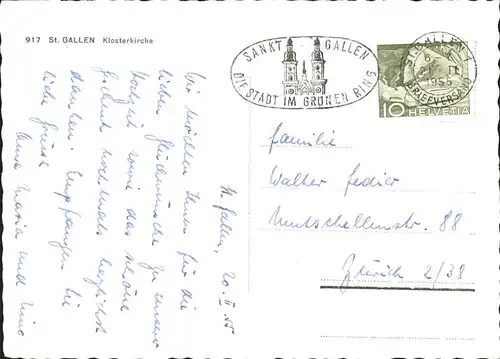 917 St. GALLEN Klosterkirche
SANKT GALLEN
DIE STADT IM GRÜNEN RING
ST. GALLEN 1
1955
BRIEFVERSAND
10 HELVETIA
St. Gallen, 20. II 55
Wir möchten Ihnen für die
lieben Glückwünsche zu unserer
Hochzeit sowie das schöne
Geschenk nochmals herzlichst
danken! Empfangen Sie
liebe Grüsse
Anna Maria und
Familie
Walter Fedier
Mutschellenstr. 88
Zürich 2/38